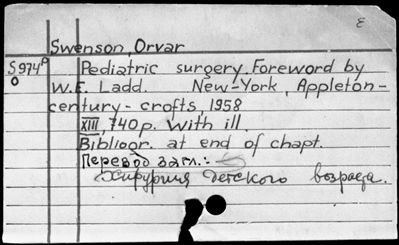 ε
Swenson, Orvar
S974p Pediatric surgery. Foreword by
O W.E. Ladd. New-York, Appleton-
century-crofts, 1958
XIII, 740 p. With ill.
Biblioor. at end of chapt.
Перевод загл.:
Хирургия детского возраста.